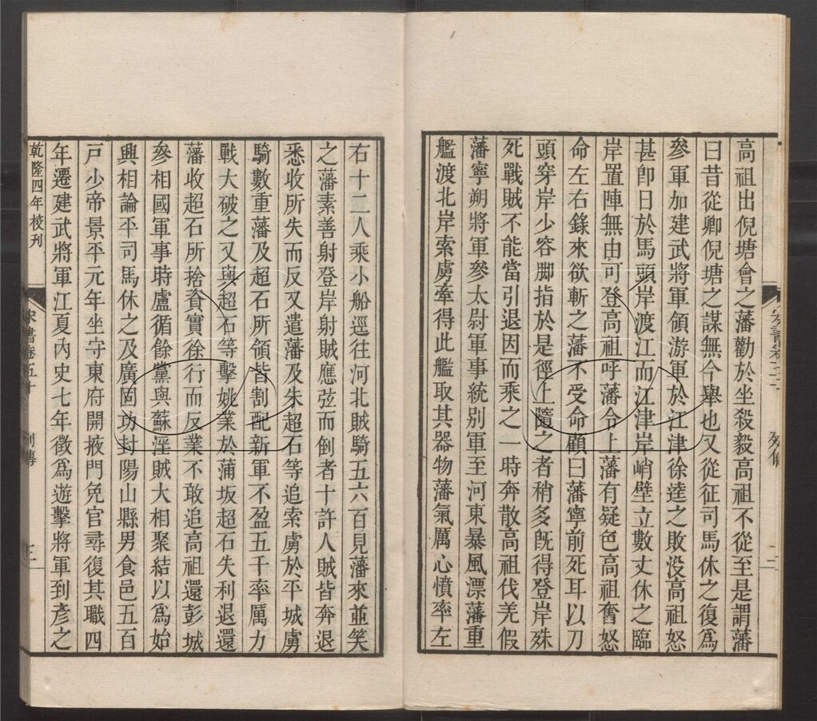 高祖出倪塘會之藩勸於坐殺毅高祖不從至是謂藩
曰昔從卿倪塘之謀無今舉也又從征司馬休之復爲
參軍加建武將軍領游軍於江津徐逵之敗没高祖怒
甚卽日於馬頭岸渡江而江津岸峭壁立數丈休之臨
岸置陣無由可登高祖呼藩令上藩有疑色高祖奮怒
命左右錄來欲斬之藩不受命顧曰藩寧前死耳以刀
頭穿岸少容腳指於是徑上隨之者稍多旣得登岸殊
死戰賊不能當引退因而乘之一時奔散高祖伐羌假
藩寧朔將軍參太尉軍事統別軍至河東暴風漂藩重
艦渡北岸索虜牽得此艦取其器物藩氣厲心憤率左
右十二人乘小船逕往河北賊騎五六百見藩來並笑
之藩素善射登岸射賊應弦而倒者十許人賊皆奔退
悉收所失而反又遣藩及朱超石等追索虜於平城虜
騎數重藩及超石所領皆割配新軍不盈五千率厲力
戰大破之又與超石等擊姚業於蒲坂超石失利退還
藩收超石所捨資實徐行而反業不敢追高祖還彭城
參相國軍事時盧循餘黨與蘇淫賊大相聚結以爲始
興相論平司馬休之及廣固功封陽山縣男食邑五百
戸少帝景平元年坐守東府開掖門免官尋復其職四
年遷建武將軍江夏內史七年徵爲遊擊將軍到彥之
乾隆四年校刊
宋書卷五十
列傳
三